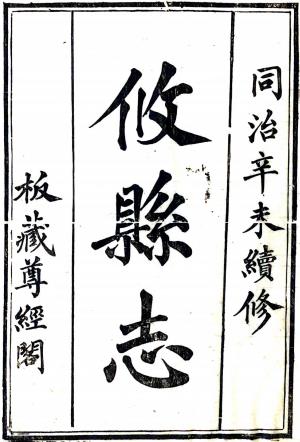 同治辛未續修
攸縣志
板藏尊經閣